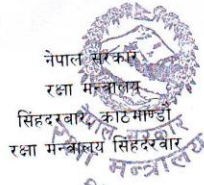 नेपाल सरकार
रक्षा मन्त्रालय
सिंहदरबार, काठमाण्डौ
रक्षा मन्त्रालय सिंहदरवार